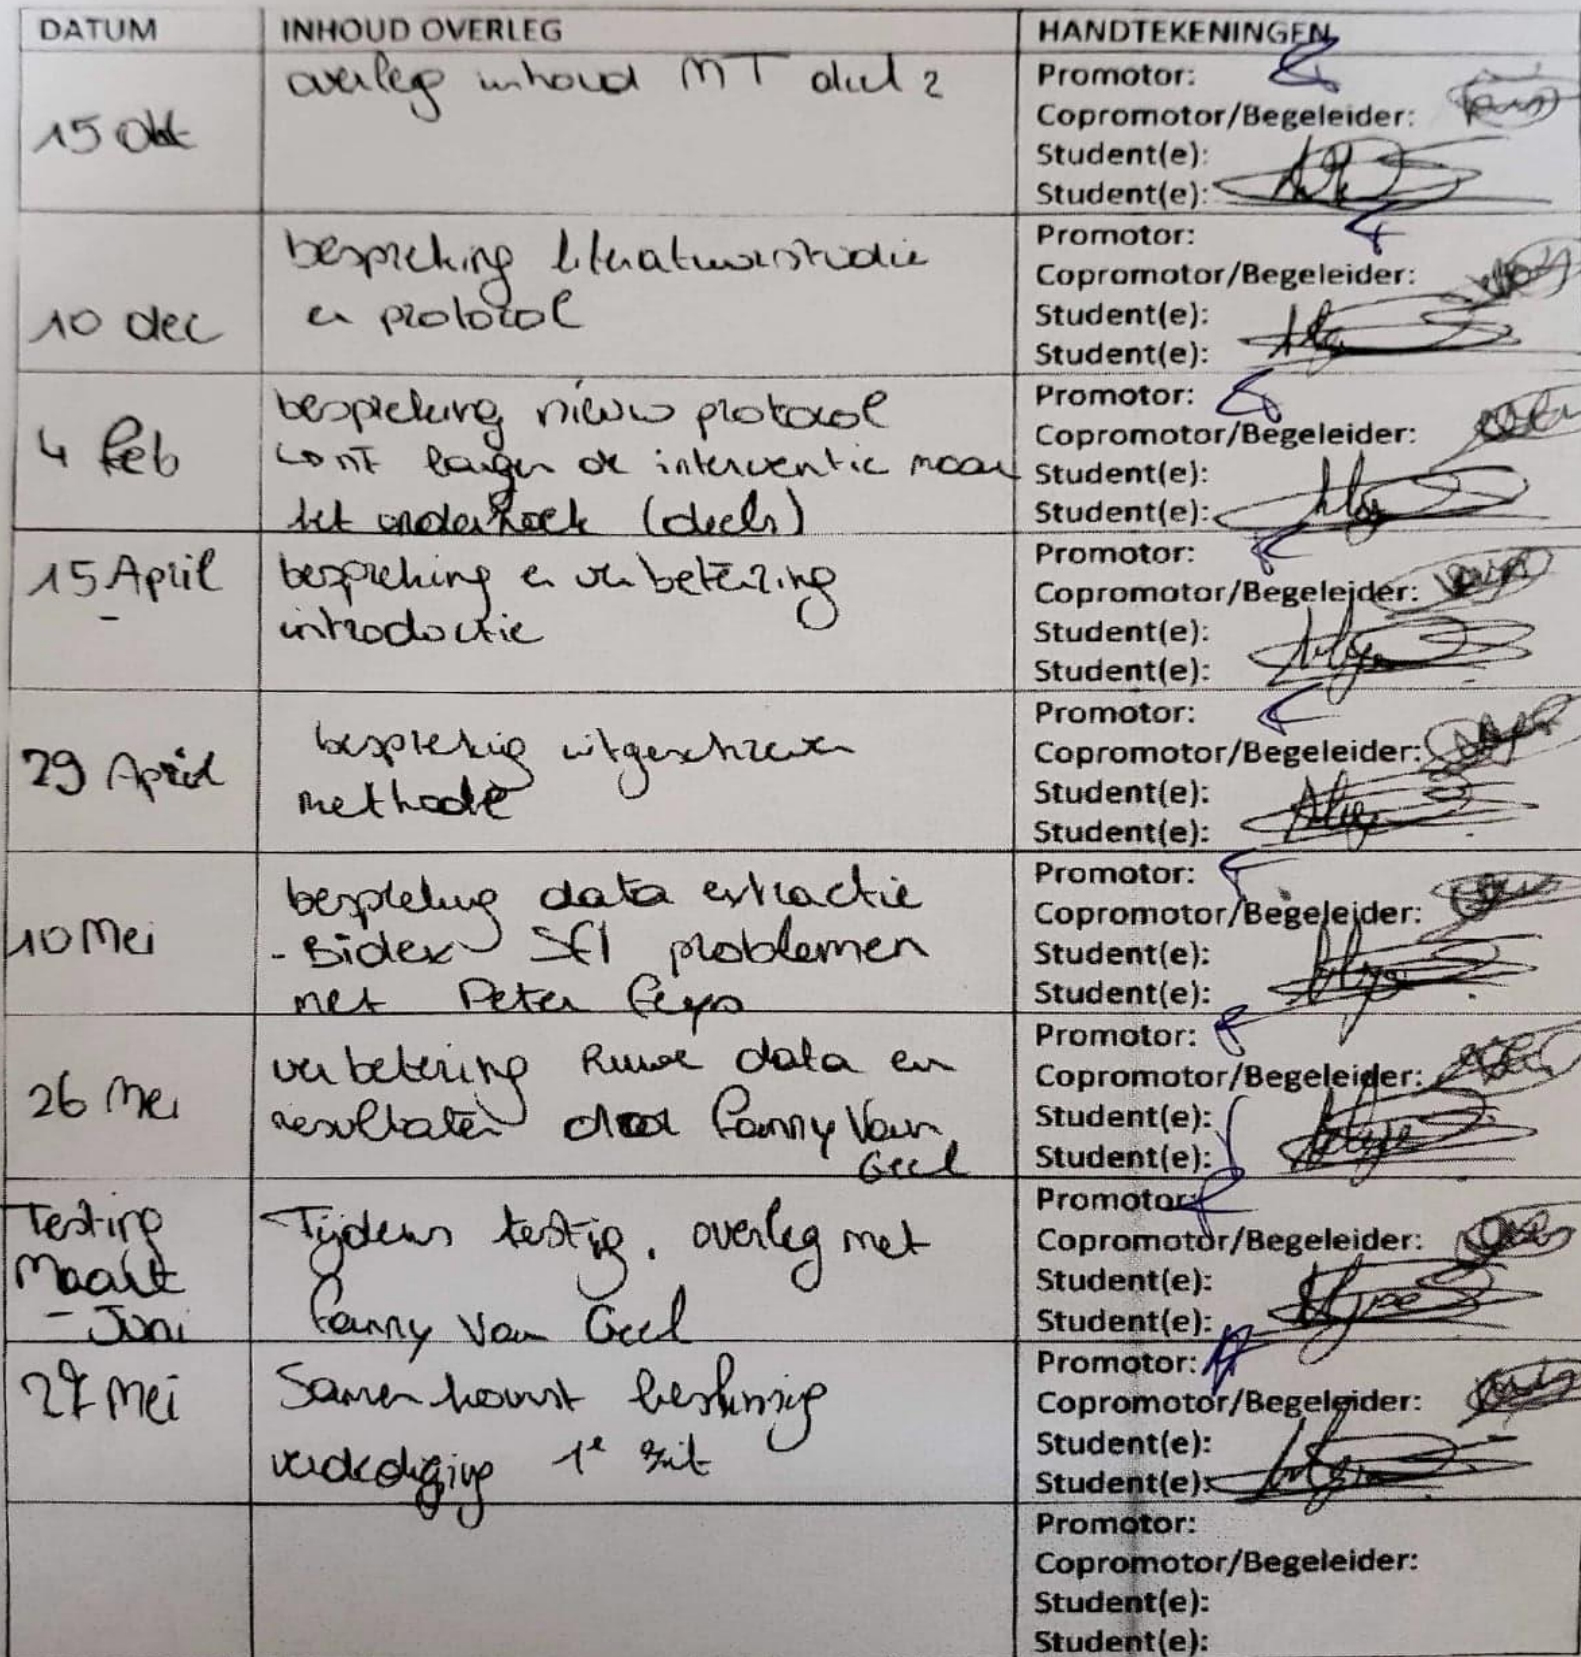 DATUM INHOUD OVERLEG HANDTEKENINGEN
15 Okt
overleg inhoud MT deel 2
Promotor:
Copromotor/Begeleider:
Student(e):
Student(e):
10 dec
bespreking literatuurstudie
en protocol
Promotor:
Copromotor/Begeleider:
Student(e):
Student(e):
4 feb
bespreking nieuw protocol
langer de interventie maar
het onderzoek (deels)
Promotor:
Copromotor/Begeleider:
Student(e):
Student(e):
15 April
bespreking en verbetering
introductie
Promotor:
Copromotor/Begeleider:
Student(e):
Student(e):
29 April
bespreking uitgeschreven
methode
Promotor:
Copromotor/Begeleider:
Student(e):
Student(e):
10 Mei
bespreking data extractie
- Biodex - SFI problemen
met Peter Feys
Promotor:
Copromotor/Begeleider:
Student(e):
Student(e):
26 Mei
verbetering Ruwe data en
resultaten door Fanny Van
Geel
Promotor:
Copromotor/Begeleider:
Student(e):
Student(e):
Testing
Maart
- Juni
Tijdens testing, overleg met
Fanny Van Geel
Promotor:
Copromotor/Begeleider:
Student(e):
Student(e):
27 Mei
Samenkomst beslissing
verdediging 1e zit
Promotor:
Copromotor/Begeleider:
Student(e):
Student(e):
Promotor:
Copromotor/Begeleider:
Student(e):
Student(e):